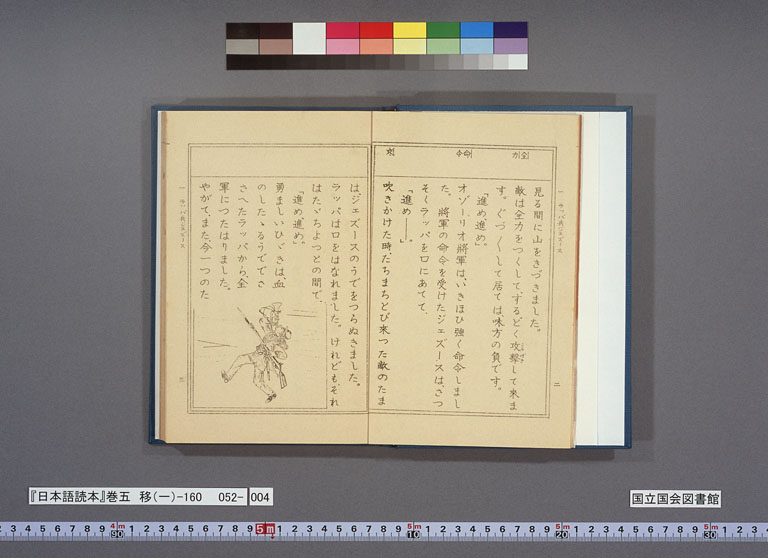 全力
命令
來
一 ラッパ兵ジェズース
二
見る間に山をきづきました。
敵は全力をつくして、するどく攻擊して來ま
す。ぐづ〱して居ては味方の負です。
「進め進め。」
オゾーリオ將軍は、いきほひ強く命令しまし
た。將軍の命令を受けたジェズースは、さつ
そくラッパを口にあてて、
「進め――。」
吹きかけた時、たちまちとび來つた敵のたま
は、ジェズースのうでをつらぬきました。
ラッパは口をはなれました。けれども、それ
はたゞちよつとの間で、
「進め進め。」
勇ましいひゞきは、血
のしたゝるうででさ
さへたラッパから、全
軍につたはりました。
やがて、また今一つのた
一 ラッパ兵ジェズース
三
『日本語読本』巻五 移(一)-160 052- 004
国立国会図書館